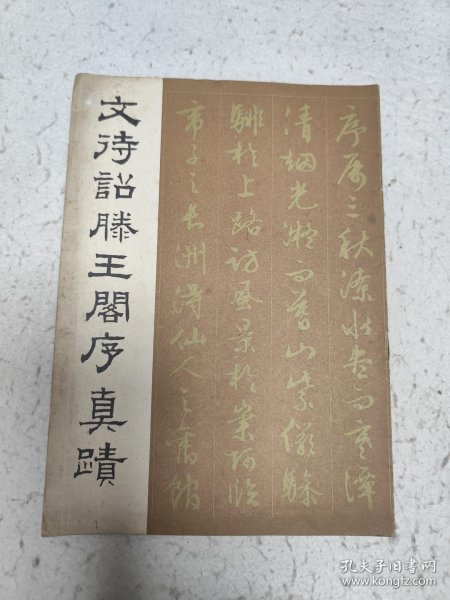 文待詔滕王閣序真蹟
序屬三秋潦水盡而寒潭
清烟光凝而暮山紫儼驂
騑於上路訪風景於崇阿臨
帝子之長洲得仙人之舊館
孔夫子旧书网
www.kongfz.com